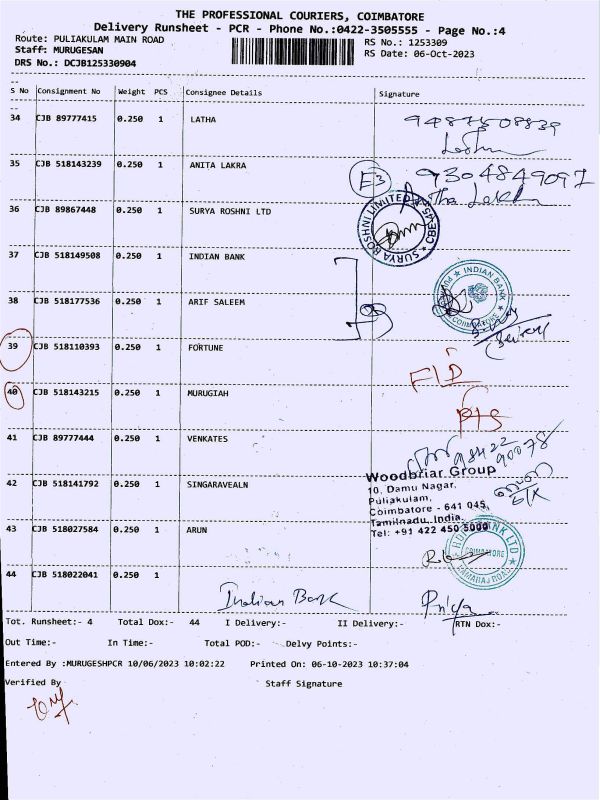 THE PROFESSIONAL COURIERS, COIMBATORE
Delivery Runsheet - PCR - Phone No.:0422-3505555 - Page No.:4
Route: PULIAKULAM MAIN ROAD RS No.: 1253309
Staff: MURUGESAN RS Date: 06-Oct-2023
DRS No.: DCJB125330904
S No Consignment No Weight PCS Consignee Details Signature
34 CJB 89777415 0.250 1 LATHA 9487508839
35 CJB 518143239 0.250 1 ANITA LAKRA E3 9304849097
36 CJB 89867448 0.250 1 SURYA ROSHNI LTD SURYA ROSHNI LIMITED CBE-45
37 CJB 518149508 0.250 1 INDIAN BANK INDIAN BANK
38 CJB 518177536 0.250 1 ARIF SALEEM COIMBATORE
39 CJB 518110393 0.250 1 FORTUNE
40 CJB 518143215 0.250 1 MURUGIAH
41 CJB 89777444 0.250 1 VENKATES 98422 90078
Woodbriar Group
42 CJB 518141792 0.250 1 SINGARAVEALN 10, Damu Nagar,
Puliakulam,
Coimbatore - 641 045,
Tamilnadu, India.
43 CJB 518027584 0.250 1 ARUN Tel: +91 422 450 5000
HDFC BANK LTD COIMBATORE RAMARAJ ROAD
44 CJB 518022041 0.250 1
Indian Bank Priya
Tot. Runsheet:- 4 Total Dox:- 44 I Delivery:- II Delivery:- RTN Dox:-
Out Time:- In Time:- Total POD:- Delvy Points:-
Entered By :MURUGESHPCR 10/06/2023 10:02:22 Printed On: 06-10-2023 10:37:04
Verified By Staff Signature